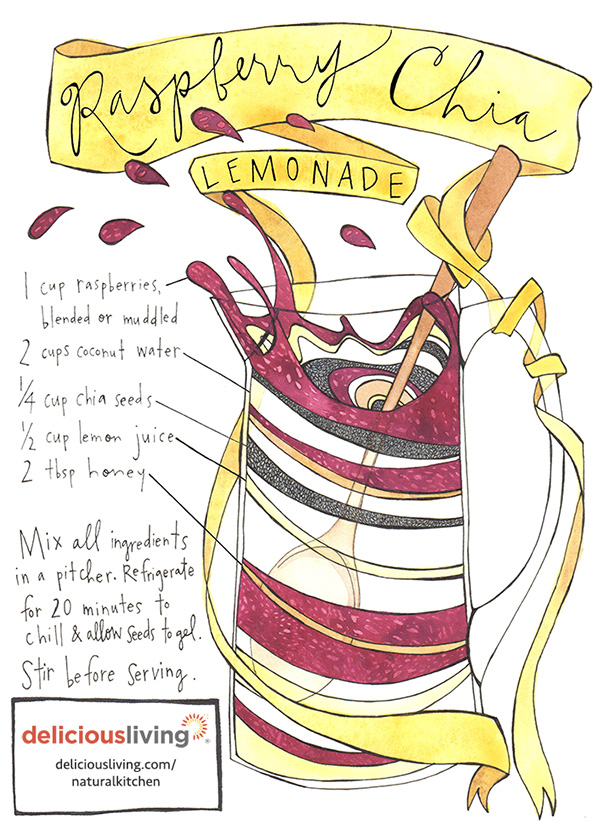 Raspberry Chia
LEMONADE
1 cup raspberries,
blended or muddled
2 cups coconut water
1/4 cup chia seeds
1/2 cup lemon juice
2 tbsp honey
Mix all ingredients
in a pitcher. Refrigerate
for 20 minutes to
chill & allow seeds to gel.
Stir before serving.
deliciousliving®
deliciousliving.com/
naturalkitchen